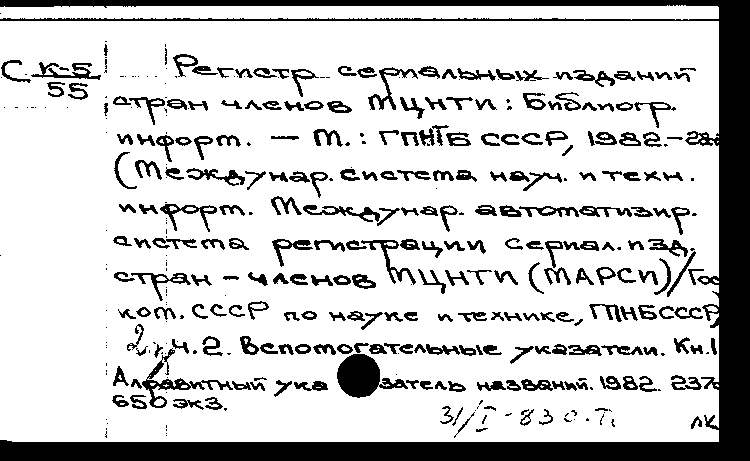 С К-5
55
Регистр сериальных изданий
стран членов МЦНТИ : Библиогр.
информ. — М. : ГПНТБ СССР, 1982.-
(Междунар. система науч. и техн.
информ. Междунар. автоматизир.
система регистрации сериал. изд.
стран - членов МЦНТИ (МАРСИ)/Гос
ком. СССР по науке и технике, ГПНБСССР,
Ч.2. Вспомогательные указатели. Кн.1
Алфавитный указатель названий. 1982. 237с
650 экз.
31/I - 83 о.Т. ЛК